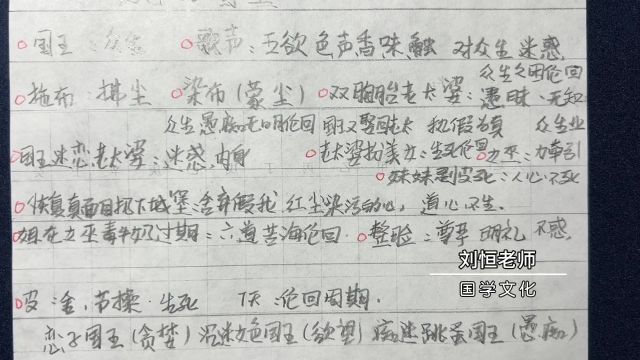 国王：众生 歌声：五欲色声香味触 对众生迷惑
众生多困轮回
拖布：拂尘 染布（蒙尘） 双胞胎老太婆：愚昧、无知
众生愚痴无明轮回 国王娶回老太 执假为真 众生业
国王迷恋老太婆：迷惑，肉身 老太婆扮美女：生死轮回 女巫：力牵引
妹妹剥皮死：人心不死
恢复真面目扔下城堡：舍弃假我，红尘染污的心，道心不生。
女巫毒牛奶过期：六道苦海轮回。 整脸：尊卑 明礼 不惑
刘恒老师
国学文化
皮：舍，节操·生死 7天：轮回周期。
恋子国王（贪婪）沉迷女色国王（欲望）痴迷跳蚤国王（愚痴）